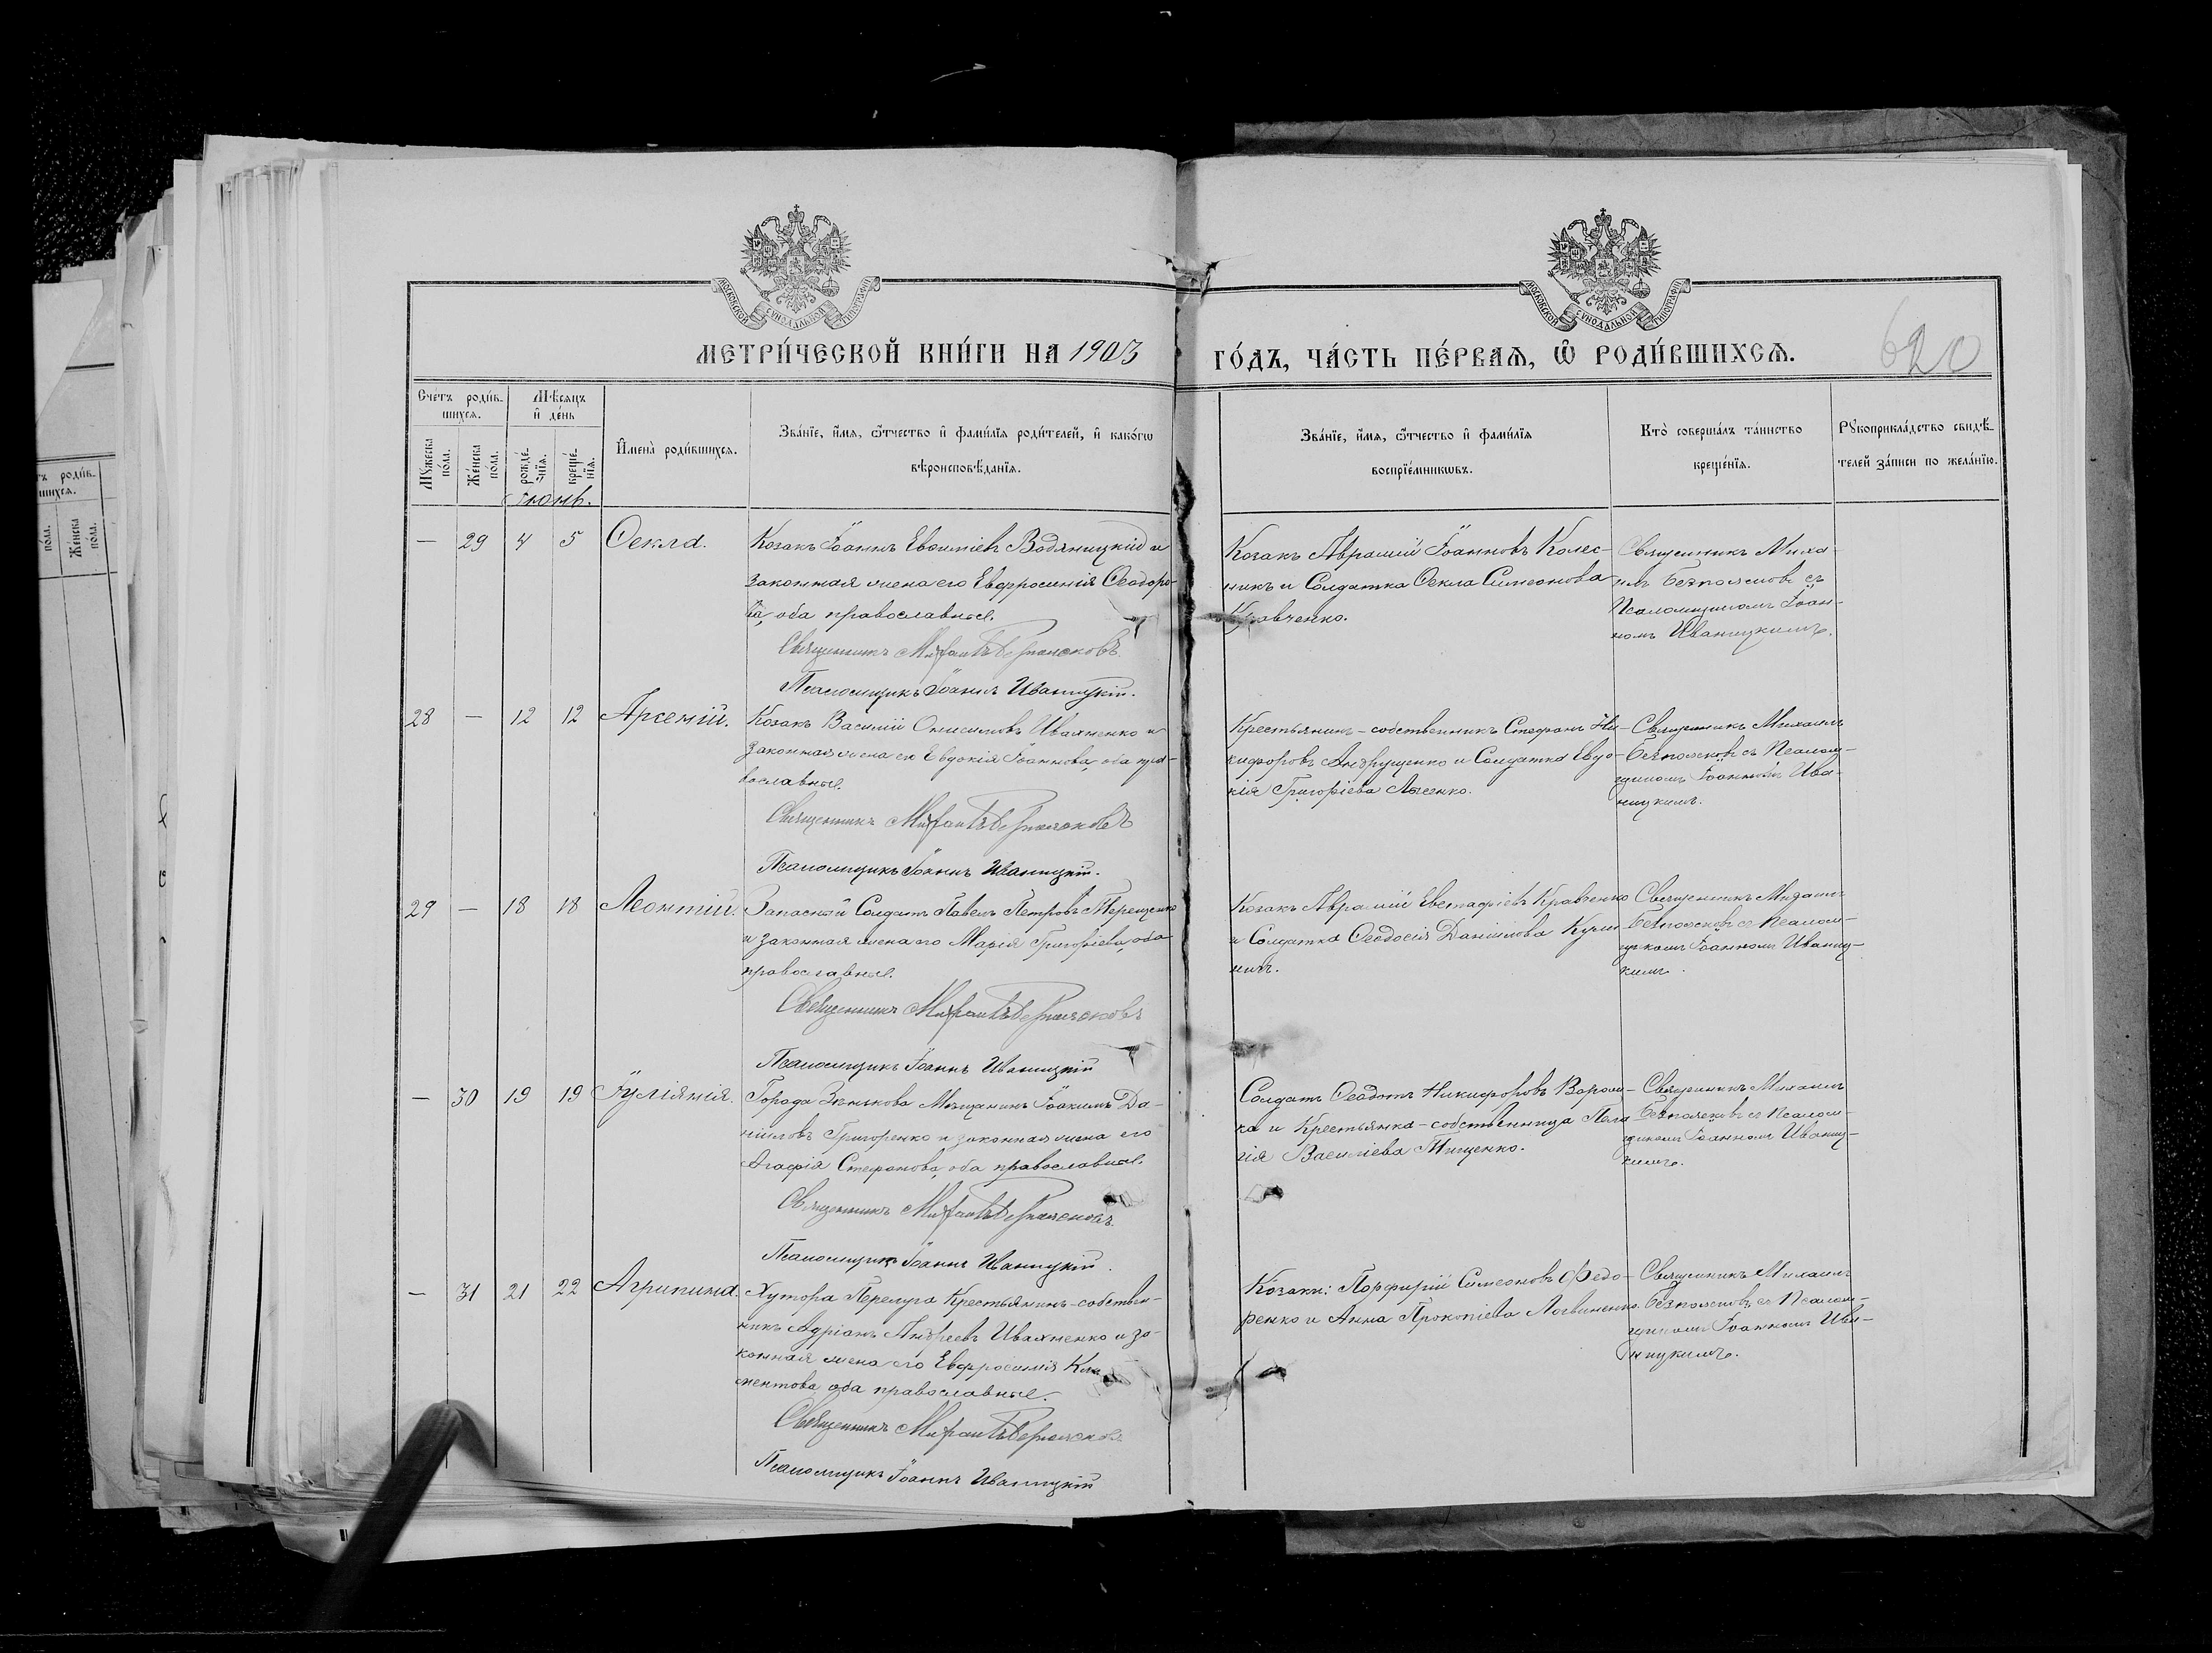 МОСКОВСКОЙ СУНОДАЛЬНОЙ ТИПОГРАФІИ
МЕТРИ́ЧЕСКОЙ КНИ́ГИ НА 1903
МОСКОВСКОЙ СУНОДАЛЬНОЙ ТИПОГРАФІИ
ГО́ДЪ, ЧА́СТЬ ПЕ́РВАѦ, Ѽ РОДИ́ВШИХСѦ.
620
Сче́тъ роди́в-
шихсѧ.
Мѣ́сѧцъ
и҆ де́нь
Мꙋ́жеска по́ла.
Же́нска по́ла.
рожде́-нїѧ.
креще́-нїѧ.
Іюнь.
И҆мена̀ роди́вшихсѧ.
Зва́нїе, и҆́мѧ, ѻ҆́тчество и҆ фами́лїѧ роди́телей, и҆ како́гѡ
вѣроисповѣ́данїѧ.
Зва́нїе, и҆́мѧ, ѻ҆́тчество и҆ фами́лїѧ
воспрїе́мникѡвъ.
Кто̀ соверша́лъ та́инство
креще́нїѧ.
Рꙋкоприкла́дство свидѣ́-
телей за́писи по жела́нїю.
— 29 4 5 Ѳекла.
Козакъ Іоаннъ Евѳиміевъ Водяницкій и
законная жена его Евфросинія Ѳеодоро-
ва, оба православные.
Священникъ Михаилъ Безпоясковъ
Псаломщикъ Іоаннъ Иваницкій.
Козакъ Аврамій Іоанновъ Колес-
никъ и Солдатка Ѳекла Симеонова
Кравченко.
Священникъ Миха-
илъ Безпоясковъ съ
Псаломщикомъ Іоан-
номъ Иваницкимъ.
28 — 12 12 Арсеній.
Козакъ Василій Онисимовъ Ивахненко и
законная жена его Евдокія Іоаннова, оба пра-
вославные.
Священникъ Михаилъ Безпоясковъ
Псаломщикъ Іоаннъ Иваницкій.
Крестьянинъ-собственникъ Стефанъ Ни-
кифоровъ Андрущенко и Солдатка Евдо-
кія Григоріева Лысенко.
Священникъ Михаилъ
Безпоясковъ съ Псалом-
щикомъ Іоанномъ Ива-
ницкимъ.
29 — 18 18 Леонтій.
Запасный Солдатъ Павелъ Петровъ Терещенко
и законная жена его Марія Григоріева, оба
православные.
Священникъ Михаилъ Безпоясковъ
Псаломщикъ Іоаннъ Иваницкій
Козакъ Аврамій Евстафіевъ Кравченко
и Солдатка Ѳеодосія Даніилова
Священникъ Михаилъ
Безпоясковъ съ Псалом-
щикомъ Іоанномъ Иваниц-
кимъ.
— 30 19 19 Іуліянія.
Города Зѣнькова Мѣщанинъ Іоакимъ Да-
ніиловъ Григоренко и законная жена его
Агафія Стефанова, оба православные.
Священникъ Михаилъ Безпоясковъ
Псаломщикъ Іоаннъ Иваницкій.
Солдатъ Ѳеодотъ Никифоровъ
и Крестьянка-собственница Пела
гія Василіева Тищенко.
Священникъ Михаилъ
Безпоясковъ съ Псалом-
щикомъ Іоанномъ Иваниц-
кимъ.
— 31 21 22 Агрипина.
Хутора Перелуга Крестьянинъ-собствен-
никъ Адріанъ Андреевъ Ивахненко и за-
конная жена его Евфросинія Кли-
ментова оба православные.
Священникъ Михаилъ Безпоясковъ
Псаломщикъ Іоаннъ Иваницкій
Козаки: Порфирій Симеоновъ Федо-
ренко и Анна Прокопіева Логвиненко.
Священникъ Михаилъ
Безпоясковъ съ Псалом-
щикомъ Іоанномъ Ива-
ницкимъ.